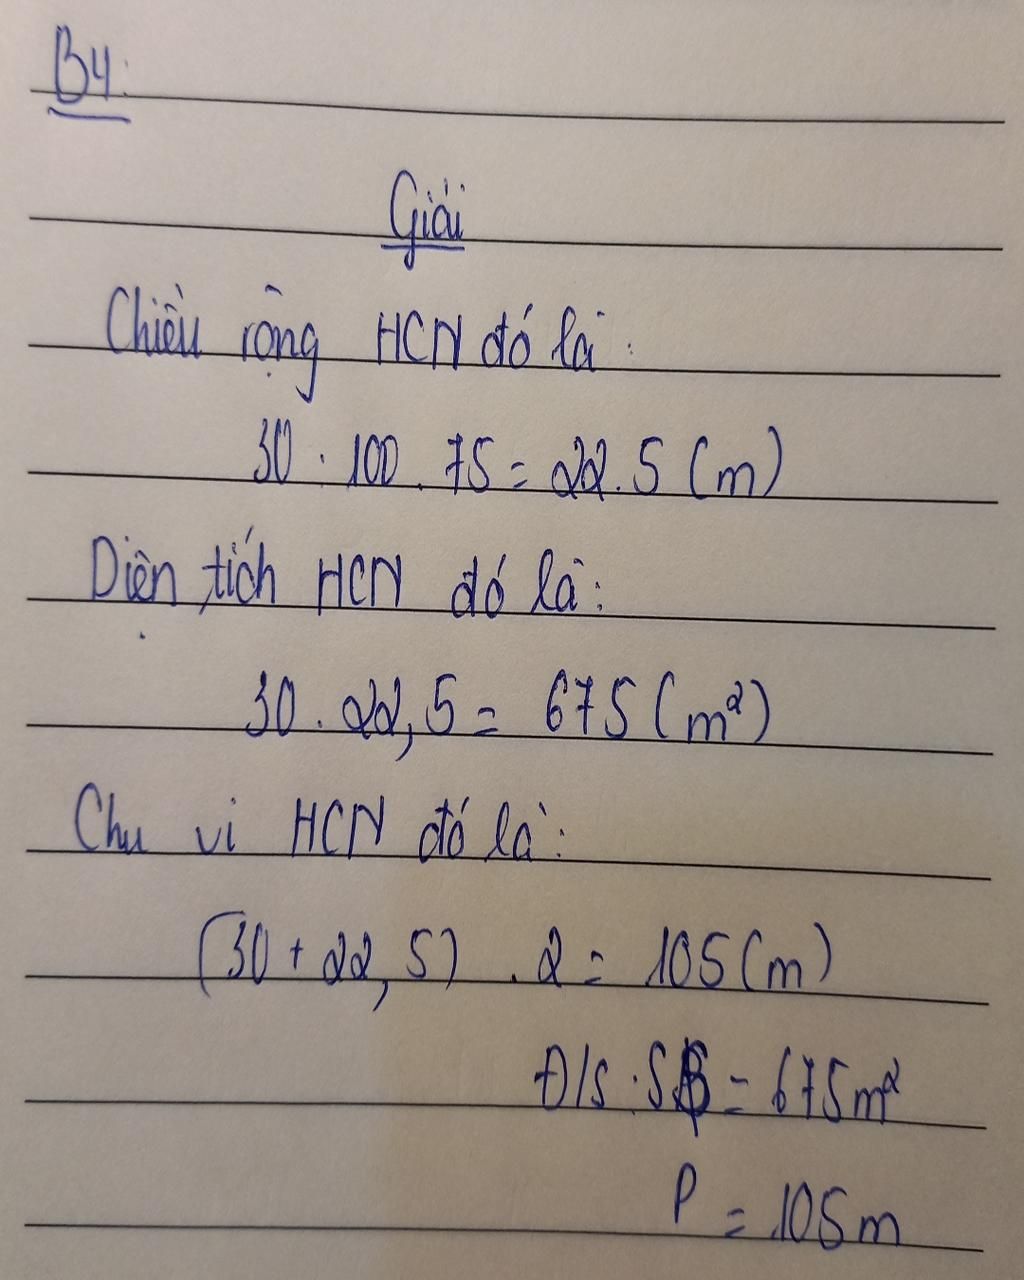 B4:
Giải
Chiều rộng HCN đó là:
30 : 100 . 75 = 22.5 (m)
Diện tích HCN đó là:
30 . 22,5 = 675 (m²)
Chu vi HCN đó là:
(30 + 22,5) . 2 = 105 (m)
Đ/S : S = 675m²
P = 105m